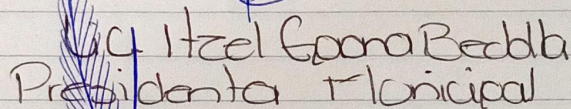 Itzel Gaona Bedolla
Presidenta Municipal